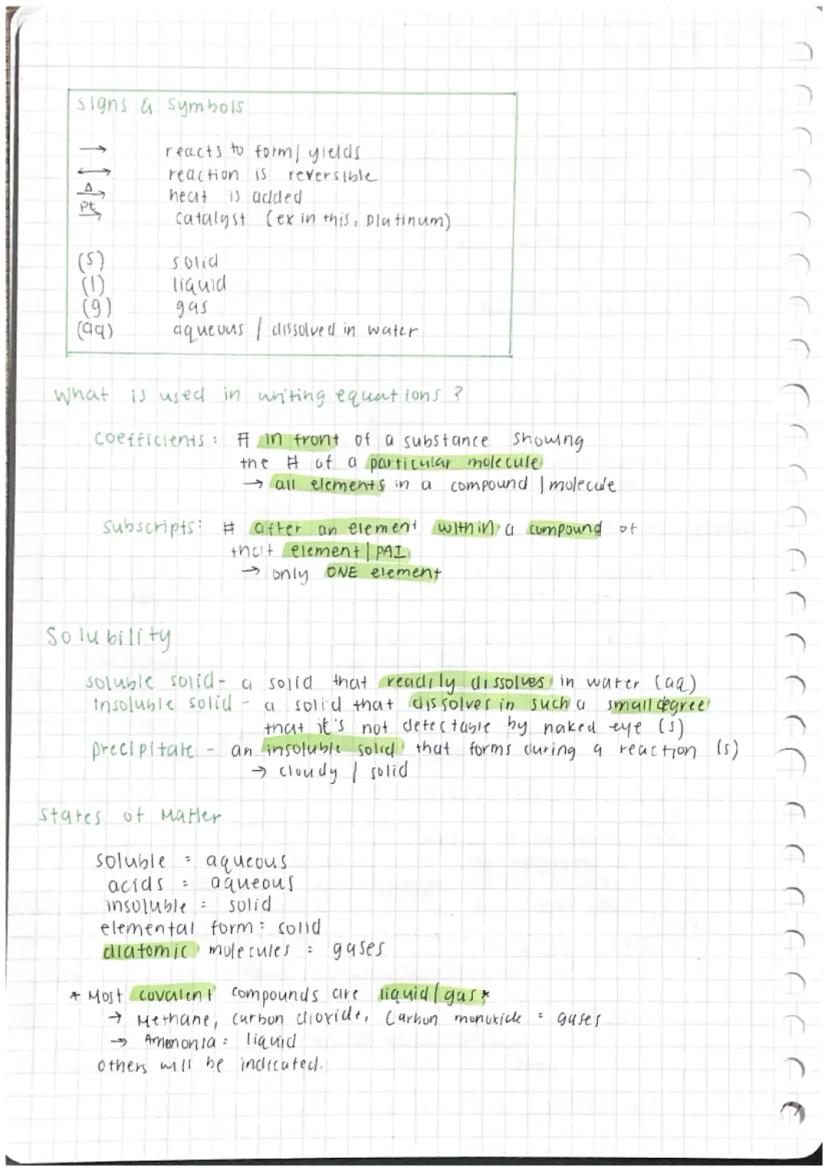 Signs & Symbols
→ reacts to form/ yields
↔ reaction is reversible
Δ→ heat is added
Pt→ catalyst (ex in this, Platinum)
(s) solid
(l) liquid
(g) gas
(aq) aqueous / dissolved in water
What is used in writing equations?
Coefficients: # in front of a substance showing
the # of a particular molecule
→ all elements in a compound / molecule
Subscripts: # after an element within a compound of
that element / PAI
→ only ONE element
Solubility
soluble solid - a solid that readily dissolves in water (aq)
Insoluble solid - a solid that dissolves in such a small degree
that it's not detectable by naked eye (s)
precipitate - an insoluble solid that forms during a reaction (s)
→ cloudy / solid
States of Matter
soluble = aqueous
acids = aqueous
insoluble = solid
elemental form = solid
diatomic molecules = gases
* Most covalent compounds are liquid/gas *
→ Methane, carbon dioxide, Carbon monoxide = gases
→ Ammonia = liquid
others will be indicated.